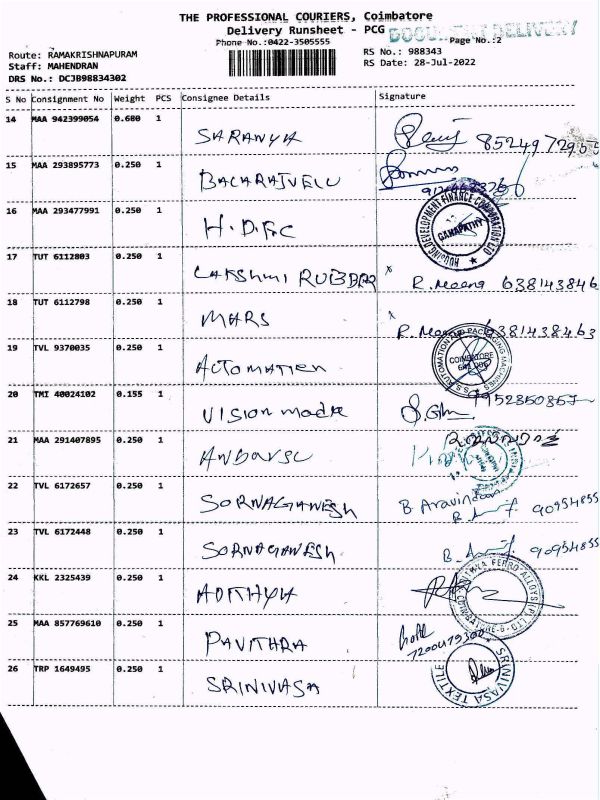 THE PROFESSIONAL COURIERS, Coimbatore
Delivery Runsheet - PCG
DOCUMENT DELIVERY
Phone No.:0422-3505555
Page No.:2
Route: RAMAKRISHNAPURAM
RS No.: 988343
Staff: MAHENDRAN
RS Date: 28-Jul-2022
DRS No.: DCJB98834302
S No Consignment No Weight PCS Consignee Details Signature
14 MAA 942399054 0.680 1
SARANYA 8524972965
15 MAA 293895773 0.250 1
BALARAJVELU
16 MAA 293477991 0.250 1
H.D.F.C
HOUSING DEVELOPMENT FINANCE CORPORATION LTD
GANAPATHY
17 TUT 6112803 0.250 1
LAKSHMI RUBBER x R. Meena 638143846
18 TUT 6112798 0.250 1
MARS x R. Meena 6381438463
19 TVL 9370035 0.250 1
AUTOMATION
S.S. AUTOMATION AND PACKAGING MACHINES
COIMBATORE
641 006
20 TMI 40024102 0.155 1
VISION MADRE 9952850857
21 MAA 291407895 0.250 1
ANDAVSU
22 TVL 6172657 0.250 1
SORNAGANESH B Aravindan 90954855
23 TVL 6172448 0.250 1
SORNAGANESH 90954855
24 KKL 2325439 0.250 1
ADITHYA
FERRO ALLOYS (P) LTD
COIMBATORE-6
25 MAA 857769610 0.250 1
PAVITHRA
7200479300
26 TRP 1649495 0.250 1
SRINIVASA
SRINIVASA TEXTILE